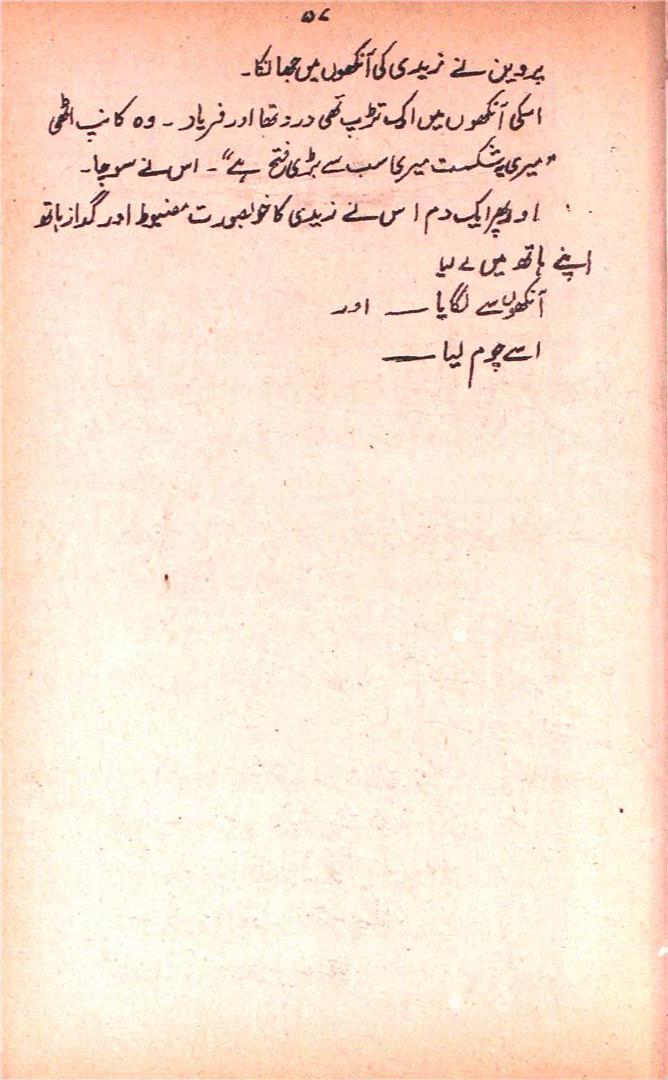 ۵۷
پروین نے زیدی کی آنکھوں میں جھانکا۔
اسکی آنکھوں میں اک تڑپ تھی درد تھا اور فریاد ۔ وہ کانپ اٹھی
"میری شکست میری سب سے بڑی فتح ہے"۔ اس نے سوچا۔
اور پھر ایک دم اس نے زیدی کا خوبصورت مضبوط اور گداز ہاتھ
اپنے ہاتھ میں لے لیا
آنکھوں سے لگایا — اور
اسے چوم لیا —